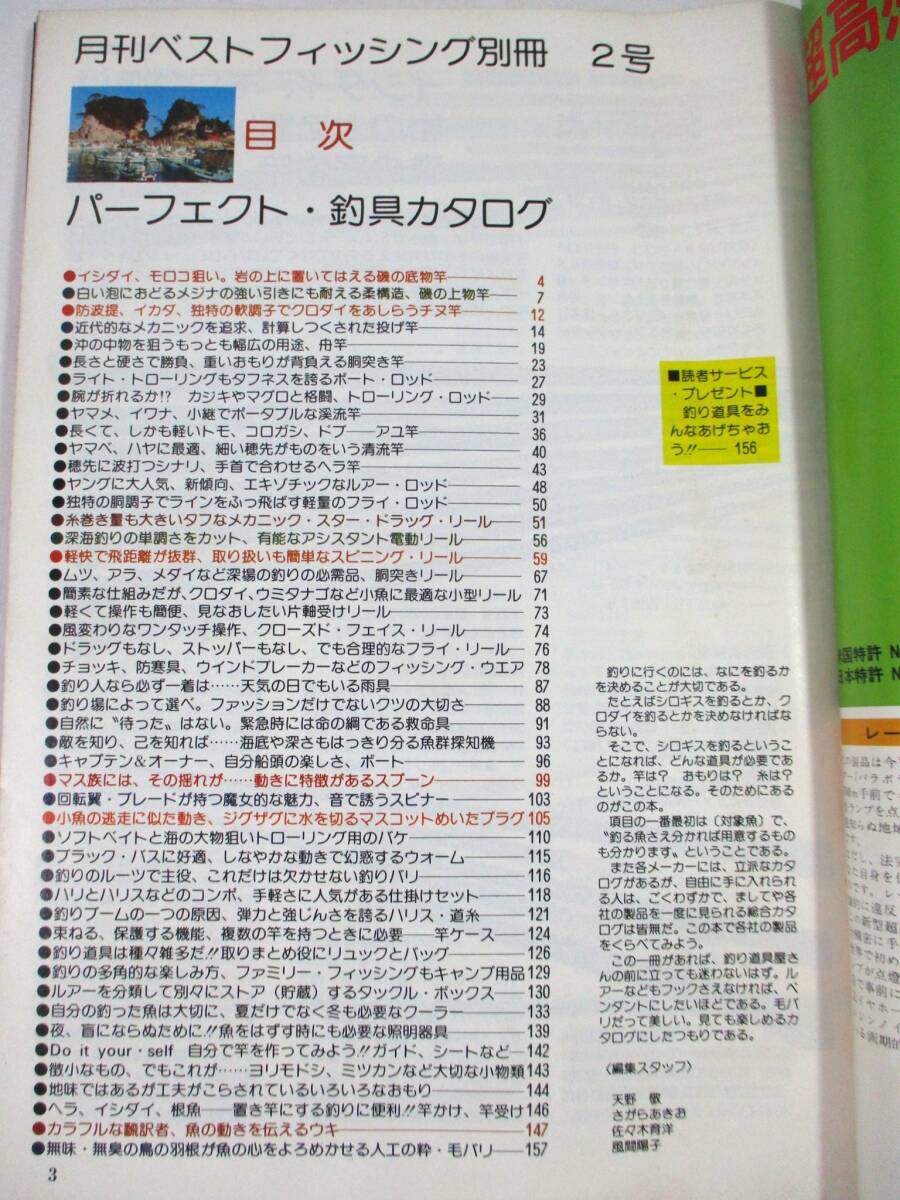 月刊ベストフィッシング別冊 2号
目次
パーフェクト・釣具カタログ
●イシダイ、モロコ狙い。岩の上に置いてはえる磯の底物竿 4
●白い泡におどるメジナの強い引きにも耐える柔構造、磯の上物竿 7
●防波提、イカダ、独特の軟調子でクロダイをあしらうチヌ竿 12
●近代的なメカニックを追求、計算しつくされた投げ竿 14
●沖の中物を狙うもっとも幅広の用途、舟竿 19
●長さと硬さで勝負、重いおもりが背負える胴突き竿 23
●ライト・トローリングもタフネスを誇るボート・ロッド 27
●腕が折れるか!? カジキやマグロと格闘、トローリング・ロッド 29
●ヤマメ、イワナ、小継でポータブルな渓流竿 31
●長くて、しかも軽いトモ、コロガシ、ドブ――アユ竿 36
●ヤマベ、ハヤに最適、細い穂先がものをいう清流竿 40
●穂先に波打つシナリ、手首で合わせるヘラ竿 43
●ヤングに大人気、新傾向、エキゾチックなルアー・ロッド 48
●独特の胴調子でラインをふっ飛ばす軽量のフライ・ロッド 50
●糸巻き量も大きいタフなメカニック・スター・ドラッグ・リール 51
●深海釣りの単調さをカット、有能なアシスタント電動リール 56
●軽快で飛距離が抜群、取り扱いも簡単なスピニング・リール 59
●ムツ、アラ、メダイなど深場の釣りの必需品、胴突きリール 67
●簡素な仕組みだが、クロダイ、ウミタナゴなど小魚に最適な小型リール 71
●軽くて操作も簡便、見なおしたい片軸受けリール 73
●風変わりなワンタッチ操作、クローズド・フェイス・リール 74
●ドラッグもなし、ストッパーもなし、でも合理的なフライ・リール 76
●チョッキ、防寒具、ウインドブレーカーなどのフィッシング・ウエア 78
●釣り人なら必ず一着は……天気の日でもいる雨具 87
●釣り場によって選べ。ファッションだけでないクツの大切さ 88
●自然に〝待った〟はない。緊急時には命の綱である救命具 91
●敵を知り、己を知れば……海底や深さもはっきり分る魚群探知機 93
●キャプテン&オーナー、自分船頭の楽しさ、ボート 96
●マス族には、その揺れが……動きに特徴があるスプーン 99
●回転翼・ブレードが持つ魔女的な魅力、音で誘うスピナー 103
●小魚の逃走に似た動き、ジグザグに水を切るマスコットめいたプラグ 105
●ソフトベイトと海の大物狙いトローリング用のバケ 110
●ブラック・バスに好適、しなやかな動きで幻惑するウォーム 115
●釣りのルーツで主役、これだけは欠かせない釣りバリ 116
●ハリとハリスなどのコンポ、手軽さに人気がある仕掛けセット 118
●釣りブームの一つの原因、弾力と強じんさを誇るハリス・道糸 121
●束ねる、保護する機能、複数の竿を持つときに必要――竿ケース 124
●釣り道具は種々雑多だ!!取りまとめ役にリュックとバッグ 126
●釣りの多角的な楽しみ方、ファミリー・フィッシングもキャンプ用品 129
●ルアーを分類して別々にストア(貯蔵)するタックル・ボックス 130
●自分の釣った魚は大切に、夏だけでなく冬も必要なクーラー 133
●夜、盲にならぬために!!魚をはずす時にも必要な照明器具 139
●Do it your・self 自分で竿を作ってみよう!!ガイド、シートなど 142
●微小なもの、でもこれが……ヨリモドシ、ミツカンなど大切な小物類 143
●地味ではあるが工夫がこらされているいろいろなおもり 144
●ヘラ、イシダイ、根魚――置き竿にする釣りに便利!!竿かけ、竿受け 146
●カラフルな翻訳者、魚の動きを伝えるウキ 147
●無味・無臭の鳥の羽根が魚の心をよろめかせる人工の粋・毛バリ 157
3
■読者サービス
・プレゼント■
釣り道具をみ
んなあげちゃお
う!!―― 156
釣りに行くのには、なにを釣るか
を決めることが大切である。
たとえばシロギスを釣るとか、ク
ロダイを釣るとかを決めなければな
らない。
そこで、シロギスを釣るというこ
とになれば、どんな道具が必要であ
るか。竿は? おもりは? 糸は?
ということになる。そのためにある
のがこの本。
項目の一番最初は〈対象魚〉で、
〝釣る魚さえ分かれば用意するもの
も分かります〟ということである。
また各メーカーには、立派なカタ
ログがあるが、自由に手に入れられ
る人は、ごくわずかで、ましてや各
社の製品を一度に見られる総合カタ
ログは皆無だ。この本で各社の製品
をくらべてみよう。
この一冊があれば、釣り道具屋さ
んの前に立っても迷わないはず。ル
アーなどもフックさえなければ、ペ
ンダントにしたいほどである。毛バ
リだって美しい。見ても楽しめるカ
タログにしたつもりである。
〈編集スタッフ〉
天野 敬
さがらあきお
佐々木育洋
風間陽子
超高
米国特許 N
日本特許 N
レー